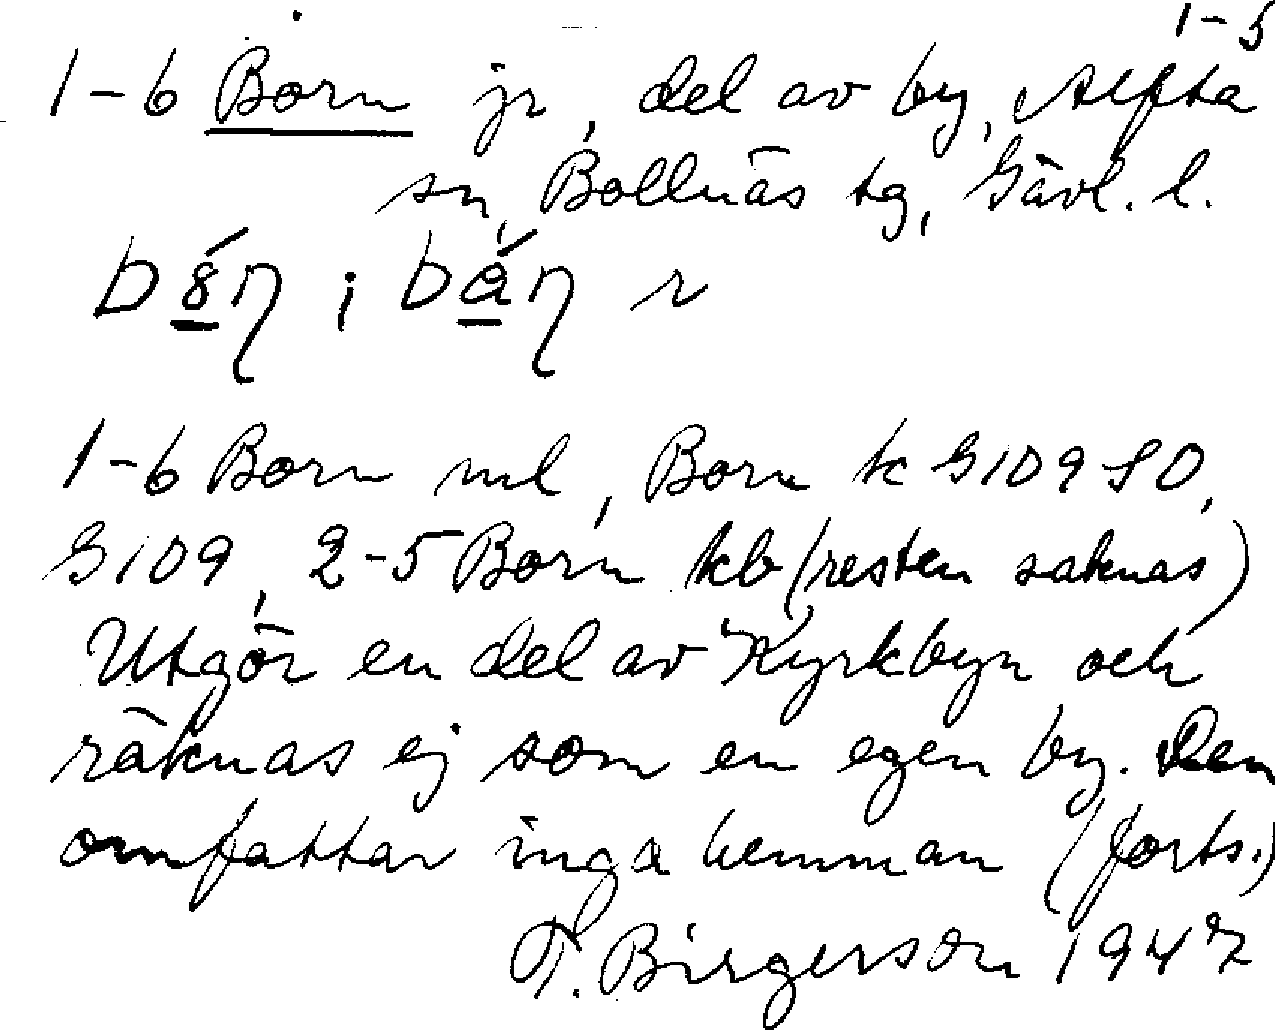 1-5
1-6 Born jr, del av by, Alfta
sn, Bollnäs tg, Gävl. l.
1-6 Born ml, Born k G109 SO,
G109, 2-5 Born kb (resten saknas)
Utgör en del av Kyrkbyn och
räknas ej som en egen by. Den
omfattar inga hemman (forts.)
T. Birgerson 1947